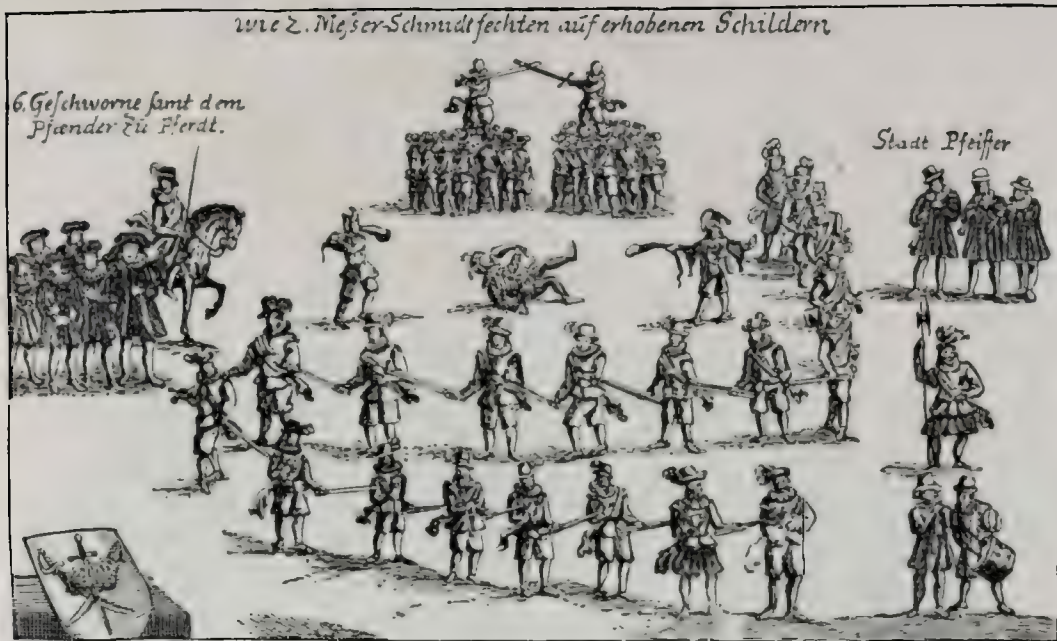 wie 2. Messer-Schmidt fechten auf erhobenen Schildern
6. Geschworne samt dem
Pfænder zu Pferdt.
Stadt Pfeiffer